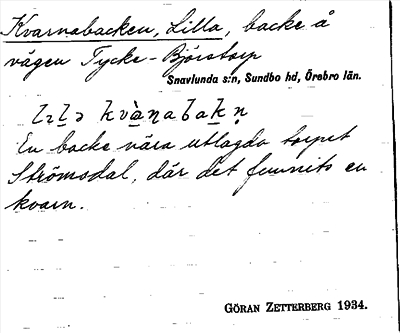 Kvarnabacken, Lilla, backe å
vägen Tycke-Björstorp
Snavlunda s:n, Sundbo hd, Örebro län.
En backe nära utlagda torpet
Strömsdal, där det funnits en
kvarn.
GÖRAN ZETTERBERG 1934.